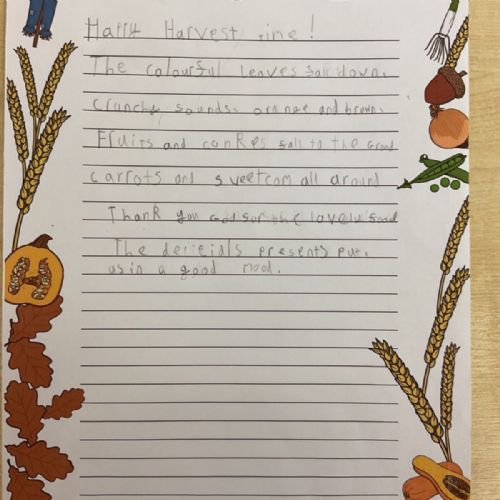 Happy Harvest time!
The colourful leaves fall down.
crunchy sounds. orange and brown.
Fruits and conkes fall to the Grond
carrots and sweetcorn all around
Thank you God for the lovely food
The delicials presents put.
us in a good mood.